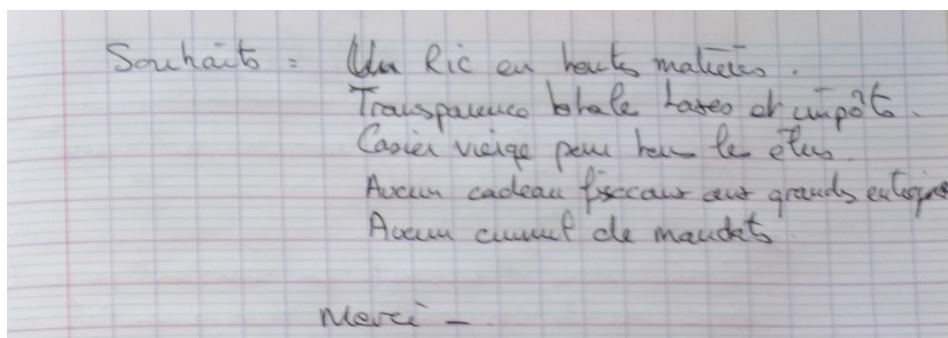 Souhaits = Un Ric en toutes matières.
Transparence totale taxes et impôts.
Casier vierge pour tous les élus.
Aucun cadeau fiscaux aux grands entreprises
Aucun cumul de mandats.
Merci -